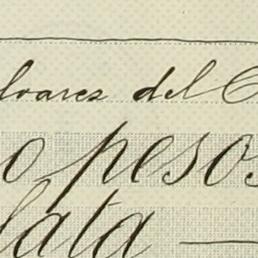 lvarez del C
o pesos
lata